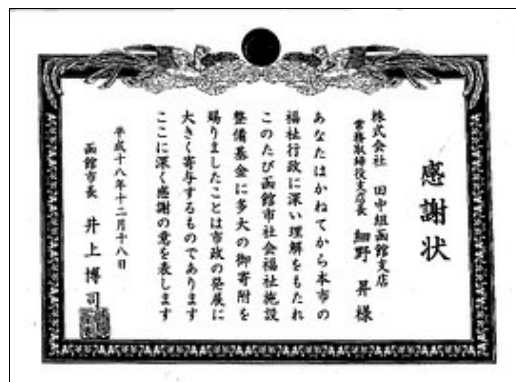 感謝状
株式会社 田中組函館支店
常務取締役支店長 細野 昇 様
あなたはかねてから本市の
福祉行政に深い理解をもたれ
このたび函館市社会福祉施設
整備基金に多大の御寄附を
賜りましたことは市政の発展に
大きく寄与するものであります
ここに深く感謝の意を表します
平成十八年十二月十八日
函館市長 井上博司